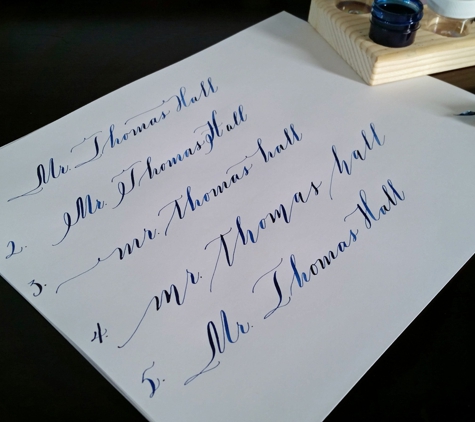 Mr. Thomas Hall
2. Mr. Thomas Hall
3. mr. Thomas hall
4. mr. Thomas hall
5. Mr. Thomas Hall